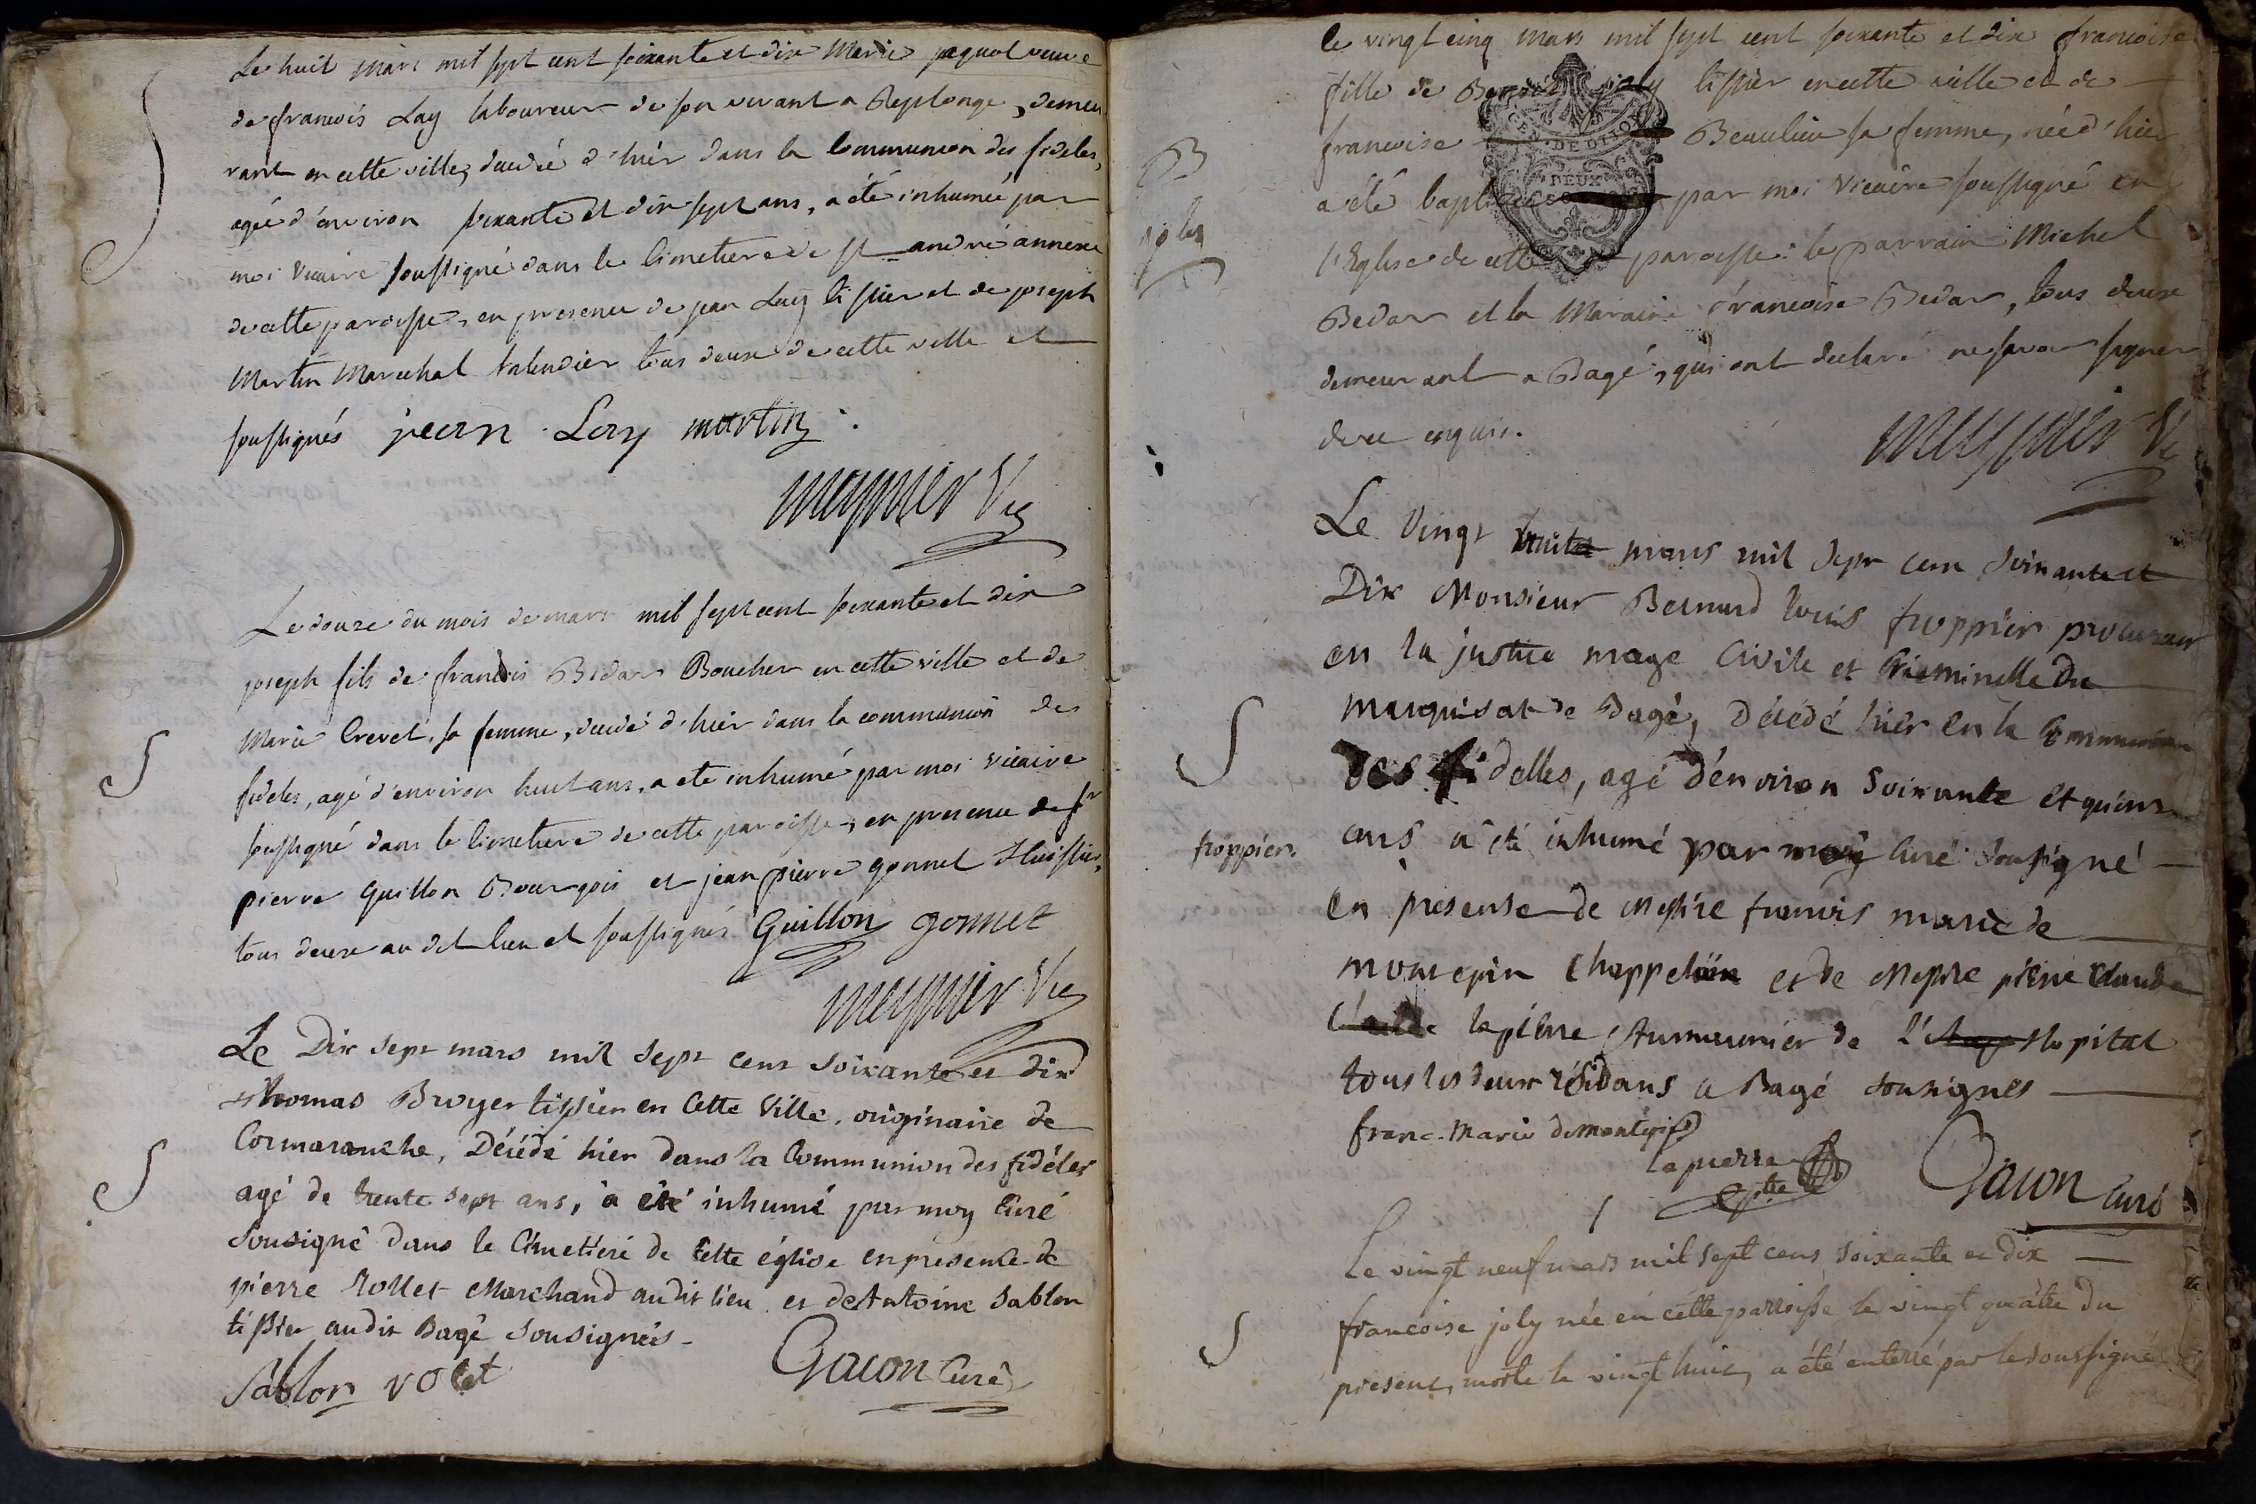 Le huit mars mil sept cent soixante et dix Marie paquot veuve
de francois Lay laboureur de son vivant a Replonge, demeu
rant en cette ville, decedé d'hiér dans la Communion des fideles,
agée d'environ soixante et dix sept ans, a été inhumée par
moi vicaire soussigné dans le Cimetiere de st andré annexe
de cette paroisse, en presence de jean Lay tissier et de joseph
Martin Marechal talendier tous deux de cette ville et
soussignés jean Lay martin
meynier Vic
Le douze du mois de mars mil sept cent soixante et dix
joseph fils de francois Bedar Boucher en cette ville et de
Marie Crevet, sa femme, decedé d'hiér dans la communion des
fideles, agé d'environ huit ans, a ete inhumé par moi vicaire
soussigné dans le Cimetiere de cette paroisse, en presence de sr
pierre Guillon Bourgois et jean pierre gonnet Huissier,
tous deux au dit lieu et soussignés Guillon gonnet
meynier Vic
Le Dix sept mars mil sept cens soixante et dix
thomas Broyer tissier en Cette Ville, originaire de
Cormaranche, Décédé hier dans la Communion des fidéles
agé de trente sept ans, à été inhumé par moy Curé
Sousigné dans le Cimetiere de Cette église en presence de
pierre vollet Marchand audit lieu et de Antoine Sablon
tissier audit Bagé Sousignés
Sablon volet Gacon Curé
le vingt cinq mars mil sept cent soixante et dix francoise
fille de Benoit joly tissier en cette ville et de
francoise Beaulieu sa femme, née d'hiér
a été baptisée par moi Vicaire soussigné en
l'Eglise de cette paroisse: le parrain Michel
Bedar et la Maraine francoise Bedar, tous deux
demeurant a Bagé, qui ont declaré ne savoir signer
de ce enquis.
meynier Vic
B
joly
GEN. DE DIJON
DEUX
Le Vingt huit mars mil sept cens soixante et
Dix Monsieur Bernard louis froppier procureur
en la justice mage Civile et Crieminelle du
marquisat de Bagé, Décédé hier en la Communion
des fidelles, agé d'environ soixante et quinze
ans a été inhumé par moy Curé Sousigné
froppier.
en presense de Messire francois marie de
montepin Chappelain et de Messire pierre Claude
lapierre Aumaunier de l'hopital
tous les deux résidans a Bagé sousignés
franc. Marie demontépin
lapierre
Gacon Curé
Le vingt neuf mars mil sept cens soixante et dix
francoise joly née en cette parroisse le vingt quatre du
present, morte le vingt huit, a été enterré par le soussigné